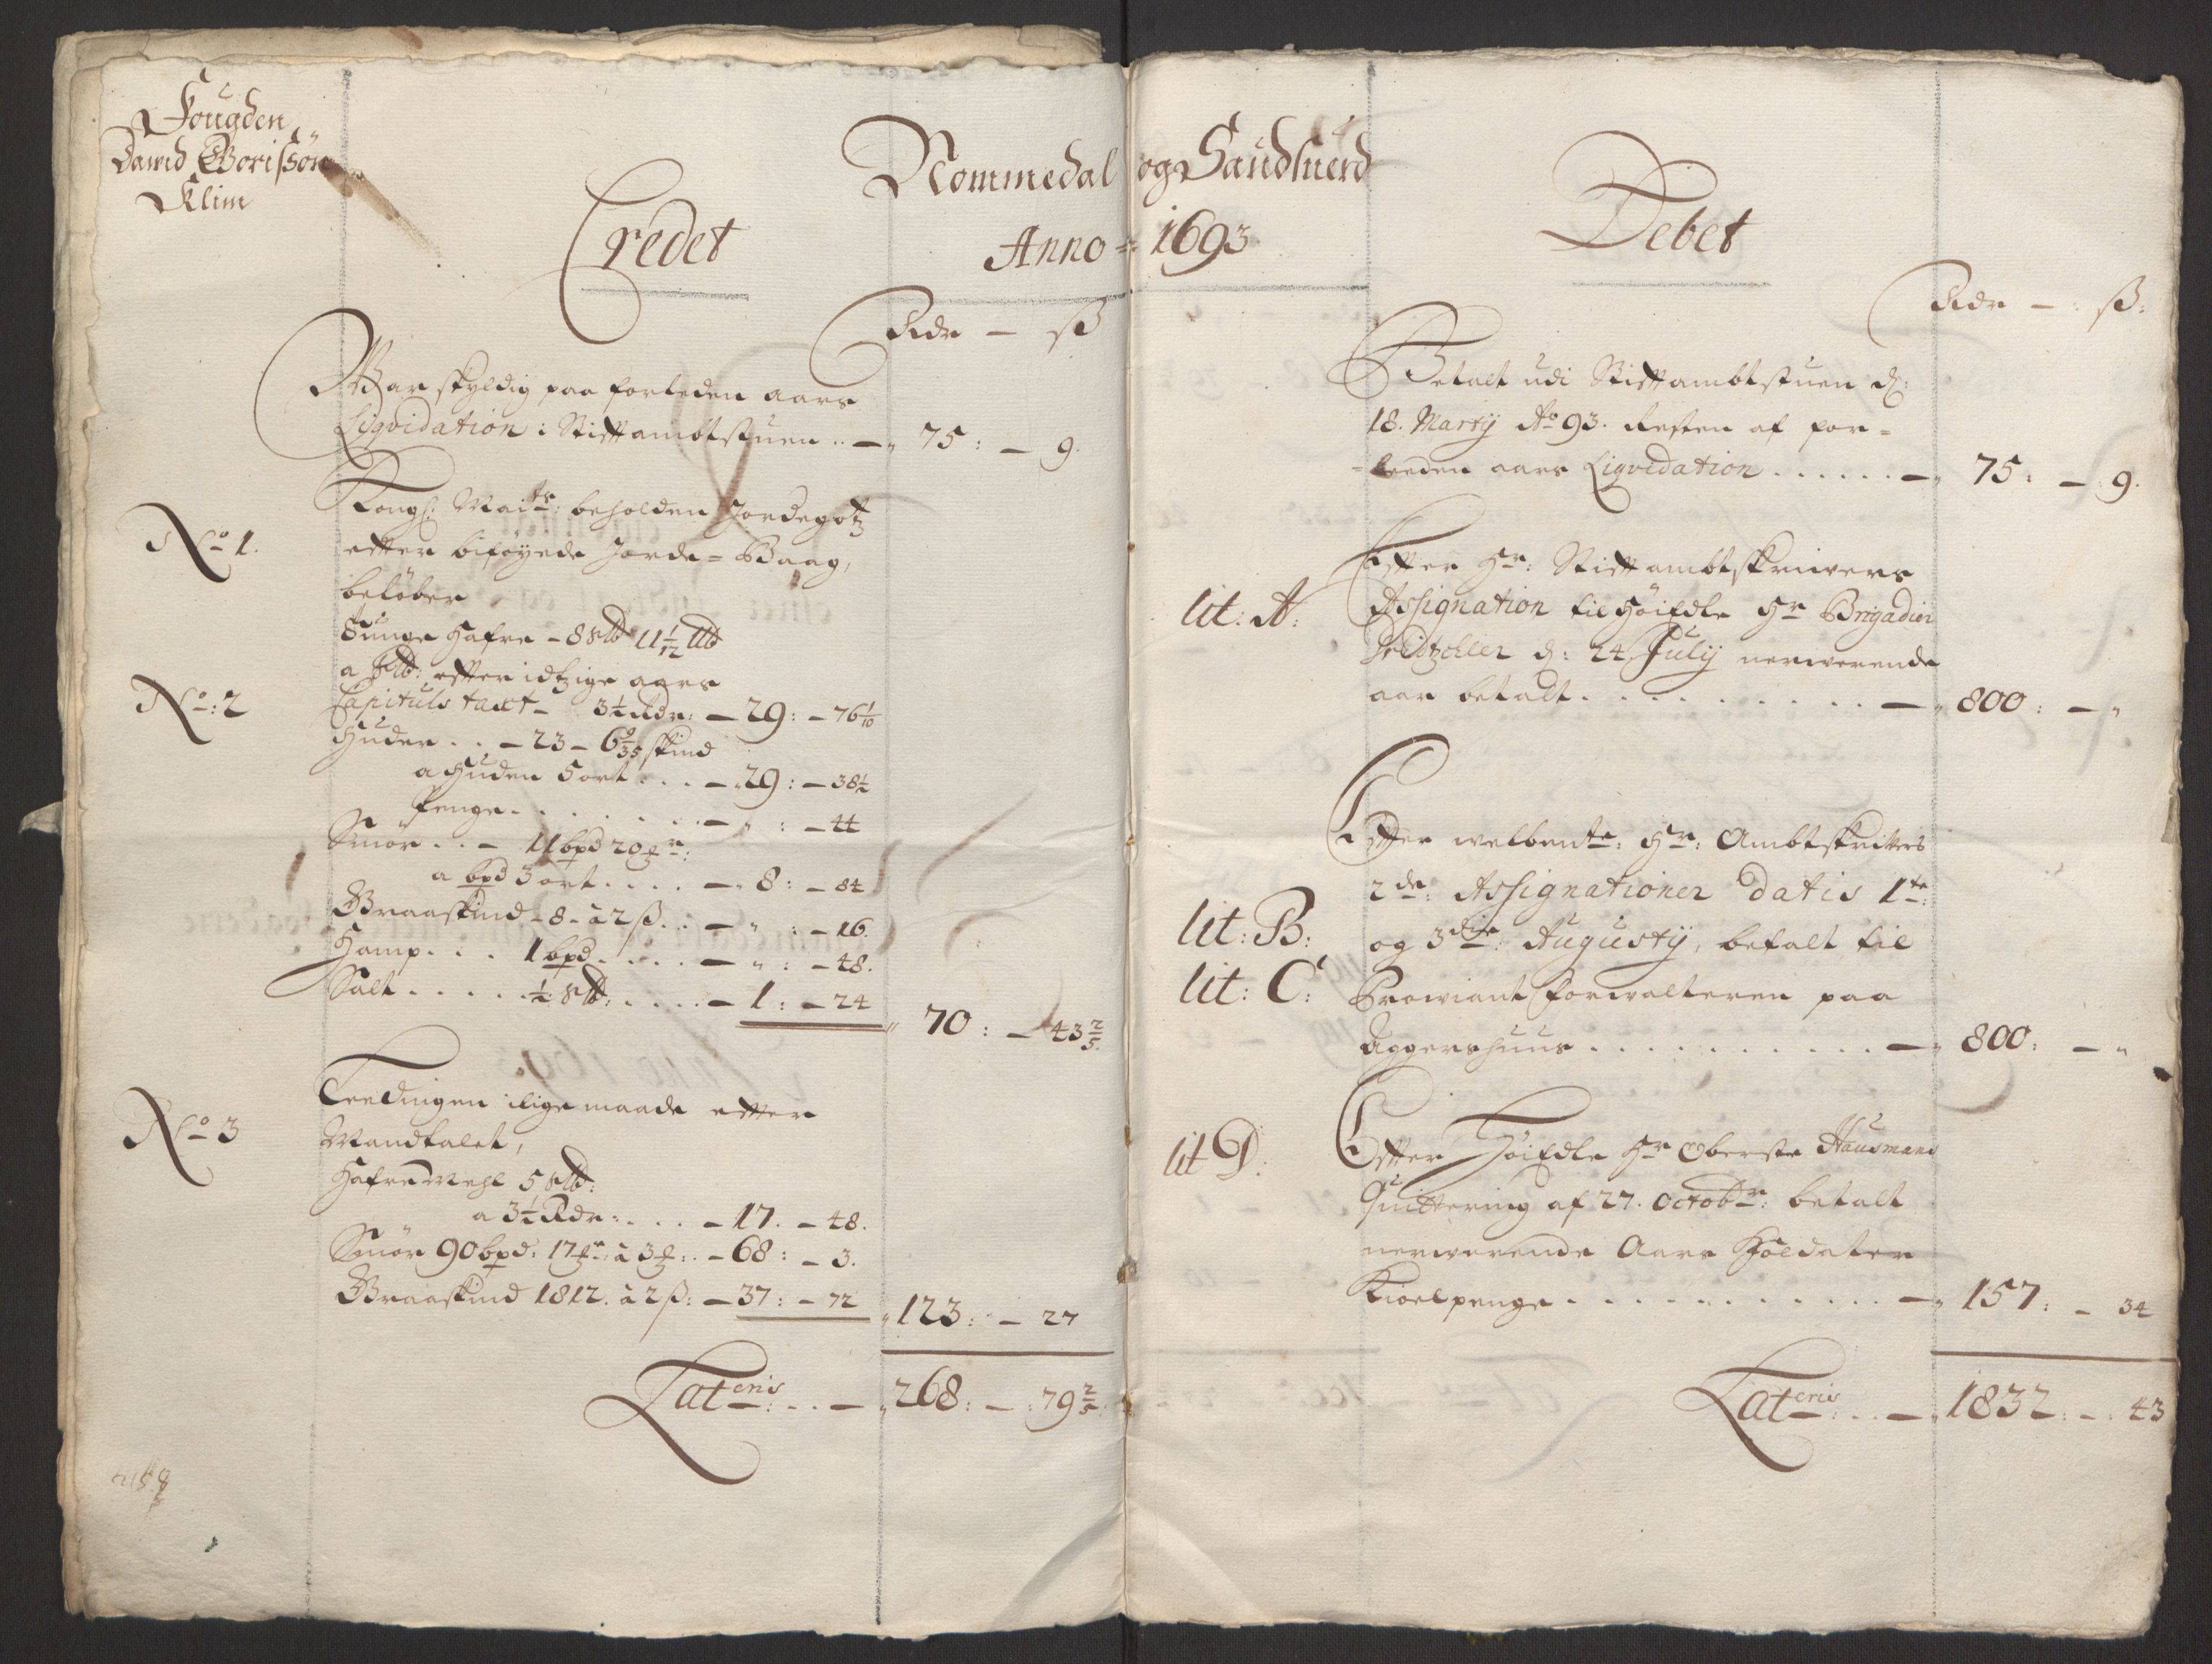 Fougden
Dawid Boriſsön
Klim
Nommedal og Sandsuerd
Anno = 1693
Credet
Rdr — ß
War skyldig paa forleden aars
Liqvidation i Stiftambtstuen .. — 75 : — 9.
No 1.
Kongl: Maits: beholden Jordegotz
efter biføyede Jorde = Baag,
beløber
Tunge Hafre - 8 Slb 11 1/12 Llb
No: 2
a Slb: efter idtzige aars
Capituls taxt - 3 1/2 Rdr: — 29 : — 76 1/10
Huder . . — 23 — 6 9/35 skind
a Huden 5 ort . . . — 29 : — 38 1/2
Penge . . . . . . — " : — 44
Smör . . — 11 bpd 20 mr:
a bpd 3 ort . . . . — 8 : — 84
Graaskind - 8 - à 2 ß . . — " : — 16.
Hamp . . . 1 bpd . . . . — " : — 48.
Salt . . . . . 1/2 Slb: . . . . — 1 : — 24
70 : — 43 2/5
No 3
Leedingen ilige maade efter
Mandtalet,
Hafre Mehl 5 Slb:
a 3 1/2 Rdr: . . . — 17. — 48.
Smör 90 bpd: 17 mr: à 3 mk: . — 68 : — 3.
Graaskind 1812. à 2 ß: — 37 : — 72
123 : — 27
Lateris . . . — 268 : — 79 2/5
Debet
Rdr — ß:
Betalt udi Stiftambtstuen d:
18. Martij Ao 93. Resten af for=
=leeden aars Liqvidation . . . . . . — 75 : — 9.
Efter Hr: Stiftambtskriwers
lit: A:
Assignation til Höiedle Hr Brigadier
d: 24 July nerwerende
aar betalt . . . . . . . . . . — 800 : — "
Efter welbente: Hr: Ambtskriwers
2de: Assignationer datis 1te:
lit: B:
og 3die: Augustij, betalt til
lit: C:
Prowiant forwalteren paa
Aggershuus . . . . . . . . . . — 800 : — "
lit D:
Efter Höiedle Hr Oberste Hausmans
Quittering af 27. Octobr: betalt
nerwerende Aars Soldater
Kioelpenge . . . . . . . . . . . — 157 : — 34
Lateris . . . — 1832 : — 43